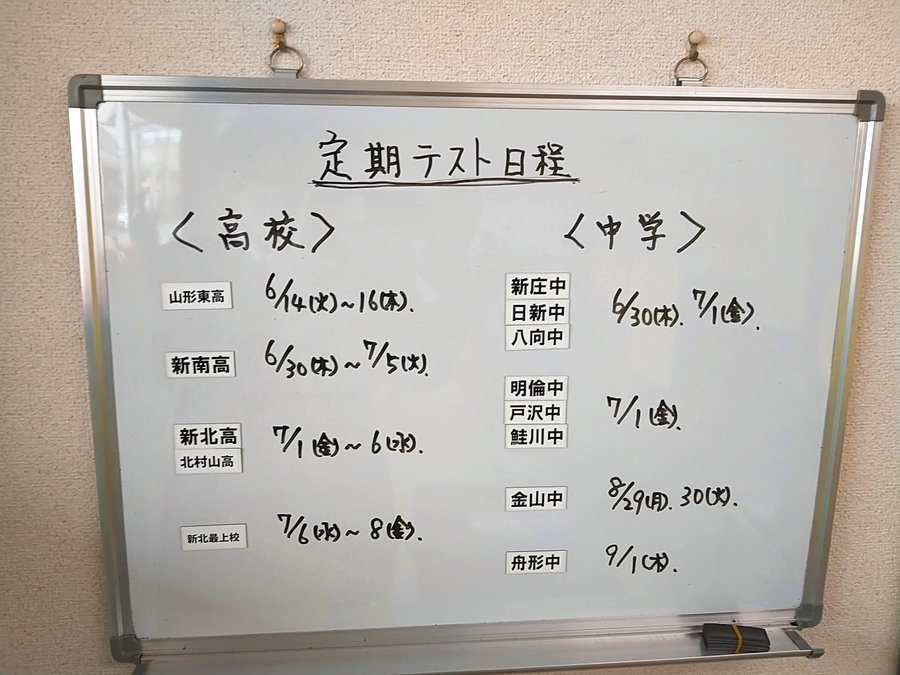 定期テスト日程
〈高校〉
山形東高 6/14(火)～16(木).
新南高 6/30(木)～7/5(火).
新北高
北村山高
7/1(金)～6(水).
新北最上校 7/6(水)～8(金).
〈中学〉
新庄中
日新中
八向中
6/30(木). 7/1(金).
明倫中
戸沢中
鮭川中
7/1(金).
金山中 8/29(月). 30(火).
舟形中 9/1(木).